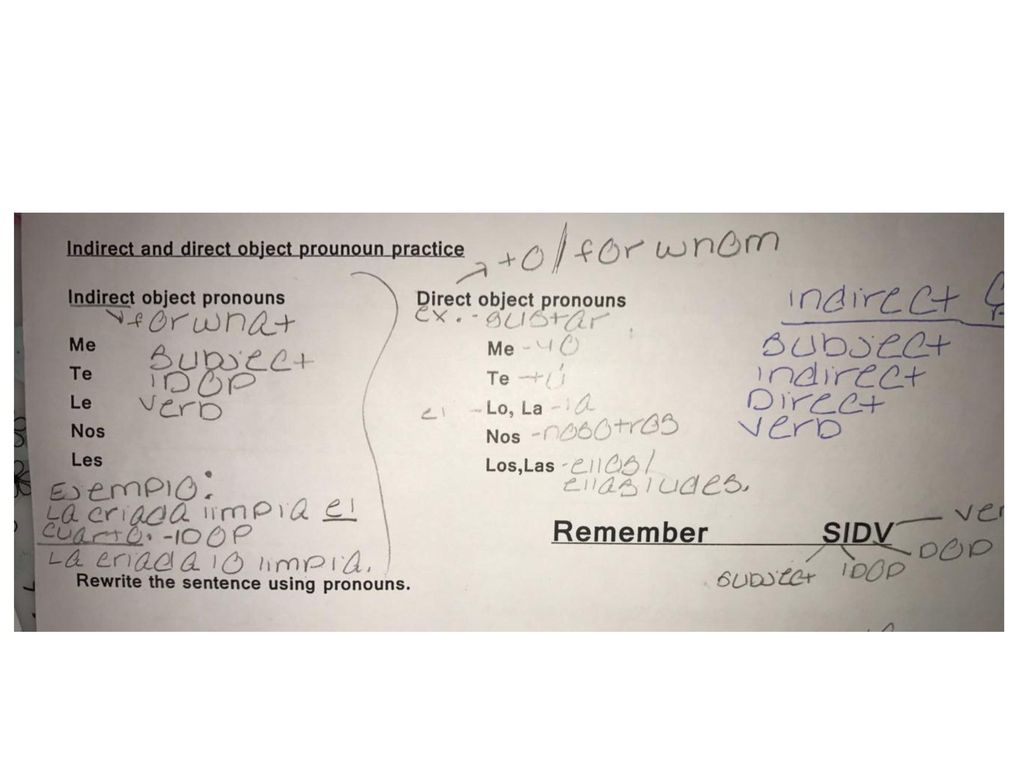 Indirect and direct object prounoun practice
to/for whom
Indirect object pronouns
for what
Me
Te
Le
Nos
Les
Subject
IDOP
verb
Ejemplo:
La criada limpia el
cuarto. -IDOP
La criada lo limpia.
Direct object pronouns
ex. - gustar
Me - yo
Te - tú
el - Lo, La - la
Nos - nosotros
Los,Las - ellos/
ellas/udes.
indirect
Subject
indirect
Direct
verb
Remember SIDV
ver
DOP
IDOP
subject
Rewrite the sentence using pronouns.